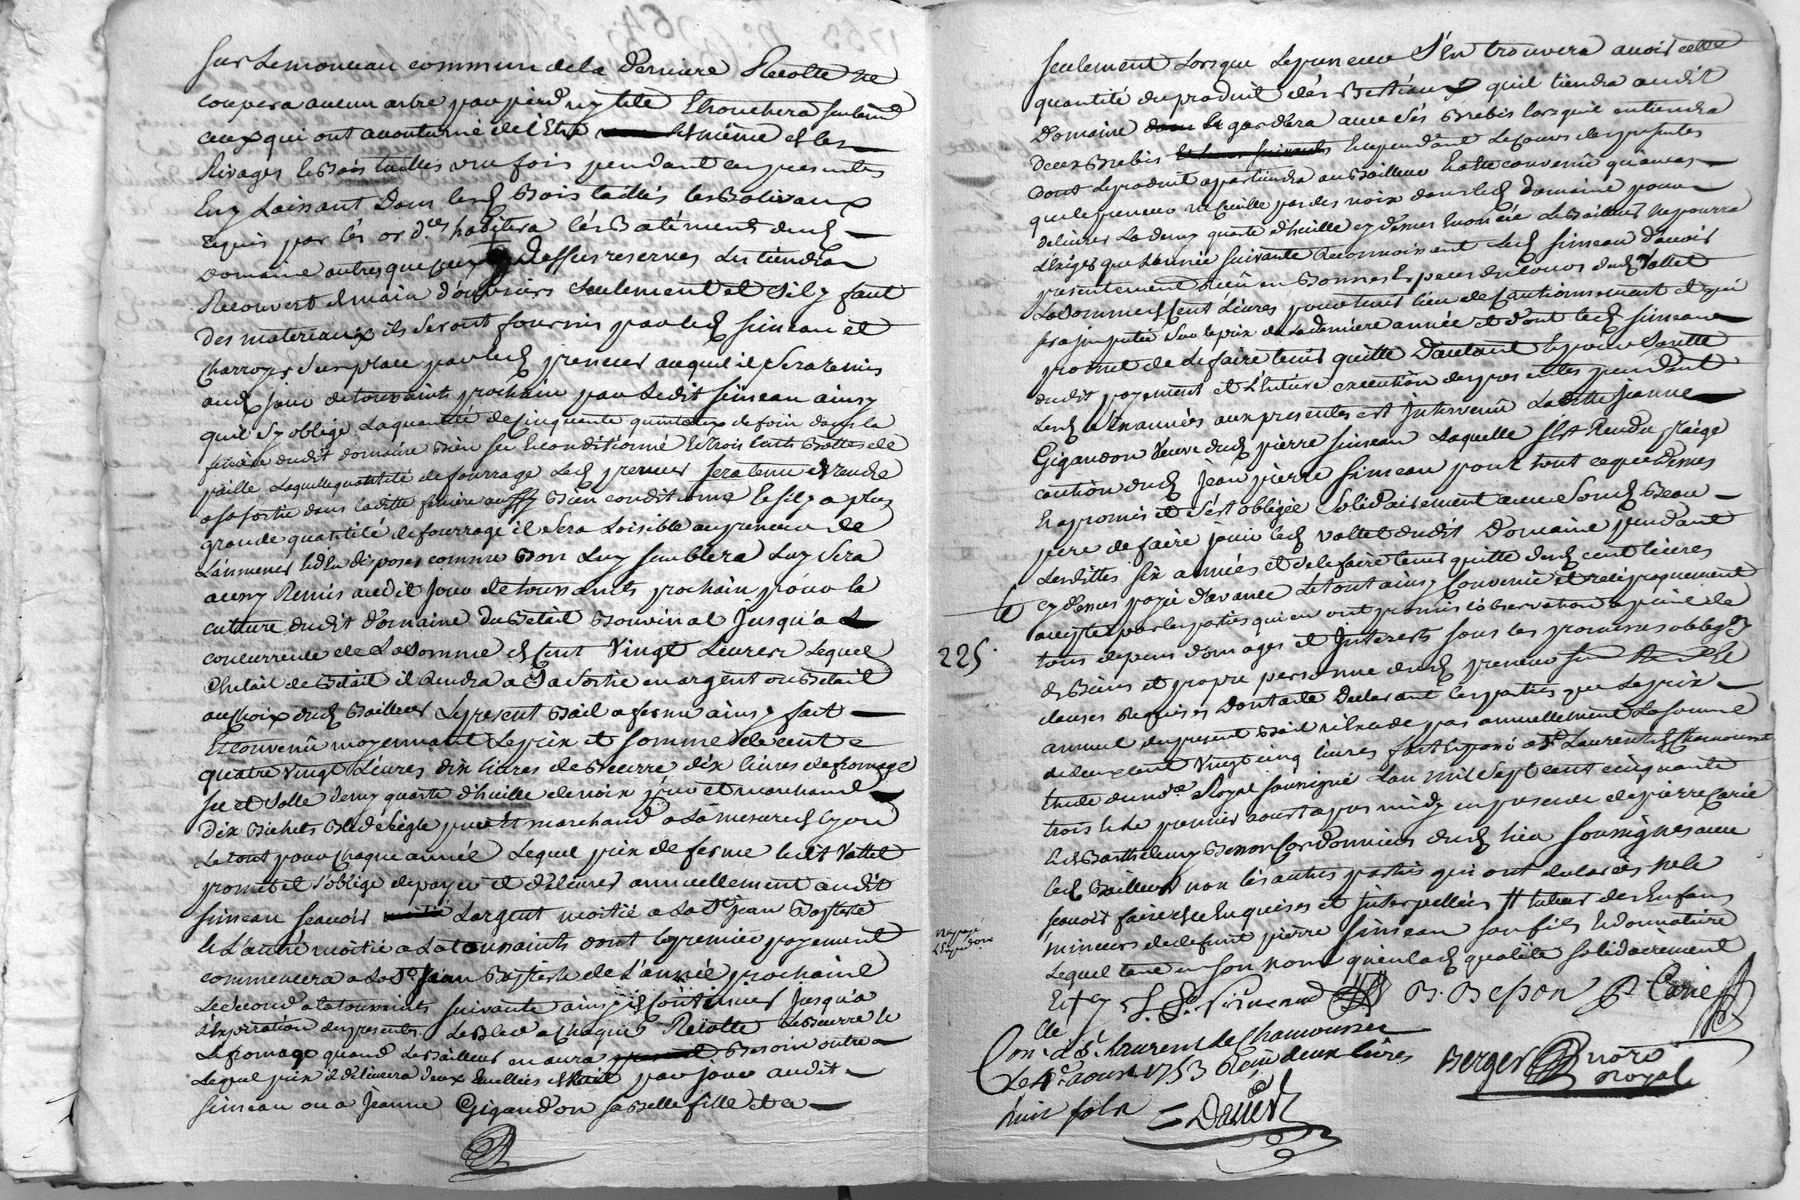 Sur Le monceau commun de la derniere Recolte ne
coupera aucun arbre par pied ny tete Ebrouchera seulemt
ceux qui ont accoutumé de l'Estre et même et les
Rivages le Bois taillis une fois pendant ces presentes
En y Laissant dans lesd Bois taillis les Baliveaux
requis par les ord.ces habitera les Batiments dud
Domaine autres que ceux Dessus reserves les tiendra
Recouvert de main d'ouvriers seulement et s'il y faut
Des materiaux ils seront fournis par led Simean et
charroyés sur place par led preneur auquel il sera remis
aud jour de toussaints prochain par Ledit Simean ainsy
qu'il s'y oblige La quantité de cinquante quinteaux de foin dans la
feniere dudit domaine Bien sec et conditionné et trois cents Bottes de
paille Laquelle quantité de fourrage Led preneur sera tenu de rendre
a sa sortie dans ladite feniere aussy Bien conditionné et s'il y a plus
grande quantité de fourrage il sera Loisible au preneur de
L'enmener et d'En disposer comme Bon Luy semblera Luy sera
aussy Remis audit jour de toussaints prochain pour la
culture dudit domaine du Betail Bouvinal jusqu'a La
concurrence de La somme de cent Vingt Livres Lequel
Chetail de Betail il rendra a Sa sortie en argent ou Betail
au choix dud Bailleur Le present Bail a ferme ainsy fait
Et convenû moyennant Le prix et somme de cent
quatre Vingt Livres dix livres de Beurre dix livres de fromage
sec et salle demy quarte d'huille de noix pure et marchande
Dix Bichets Bled seigle pur et marchand a La mesure de Lyon
Le tout pour chaque année Lequel prix de ferme ledit Vallet
promet et s'oblige de payer et delivrer annuellement audit
Simean scavoir L'argent moitié a La St jean Baptiste
et L'autre moitié a La toussaints dont le premier payement
commencera a La St jean Baptiste de L'année prochaine
Le second a la toussaints suivante ainsy continuer jusqu'a
l'Expiration des presentes Le Bled a chaque Recolte Le Beurre et
Le fromage quand Le Bailleur en aura Besoin outre
Lequel prix il delivrera deux Cuillies de Lait par jour audit
Simean ou a Jeanne Gigandon sa Belle fille et ce
seulement Lorsque Le preneur S'En trouvera avoir cette
quantité du produit des Bestiaux qu'il tiendra audit
Domaine gardera avec ses Brebis lorsquil en tiendra
deux Brebis Et pendant Le cours des presentes
dont Le produit apartiendra au Bailleur Esté convenû qu'en cas
que le preneur ne cueille pas des noix dans led domaine pour
delivrer La demy quarte d'huille cy dessus Enoncée Le Bailleur ne pourra
L'Exiger que L'année suivante Reconnoissant Led Simean d'avoir
presentement recû en Bonnes Especes du Cours dud Vallet
La somme de Cent Livres pour tenir lieu de Cautionnement et qui
sera imputée sur le prix de La derniere année et dont led Simean
promet de le faire tenir quitte D'autant Et pour Sureté
dudit payement et L'Entiere execution des presentes pendant
Lesd Six années aux presentes est Intervenûe Laditte Jeanne
Gigandon Veuve dud pierre Simean Laquelle s'Est Rendu pleige
caution dud Jean pierre Simean pour tout ce que dessus
Et a promis et s'est obligée solidairement avec Son Beau
pere de faire jouir led Vallet dudit Domaine pendant
Lesdittes Six années et de le faire tenir quitte desd cent Livres
cy dessus payée d'avance Le tout ainsy Convenû et reciproquement
accepté par les parties qui en ont promis l'observation a peine de
tous depens domages et Interests sous les promesses oblig.on
de Biens et propre personne dud preneur
clauses Requises Dont acte Declarant les parties que Le prix
annuel du present Bail n'Excede pas annuellement La somme
de deux Cent Vingt cinq livres fait et passé a St Laurent de Chamousset
Etude du no.re Royal soussigné L'an mil Sept cent cinquante
trois et Le premier aoust apres midy en presence de pierre Carié
Et de Barthelemy Besson Cordonniers dud lieu Soussignés avec
Led Bailleur non les autres parties qui ont declarées ne le
scavoir faire de ce Enquises et Interpellées # tuteur des Enfans
mineurs de defunt pierre Simean son fils Et donnataire
Lequel tant en son nom qu'en lad qualité solidairement
225
B. Besson P. Carié
Berger no.re royal
Con.lé a St Laurent de Chamousset
Le 4e aoust 1753 Reçu deux livres
huit sols